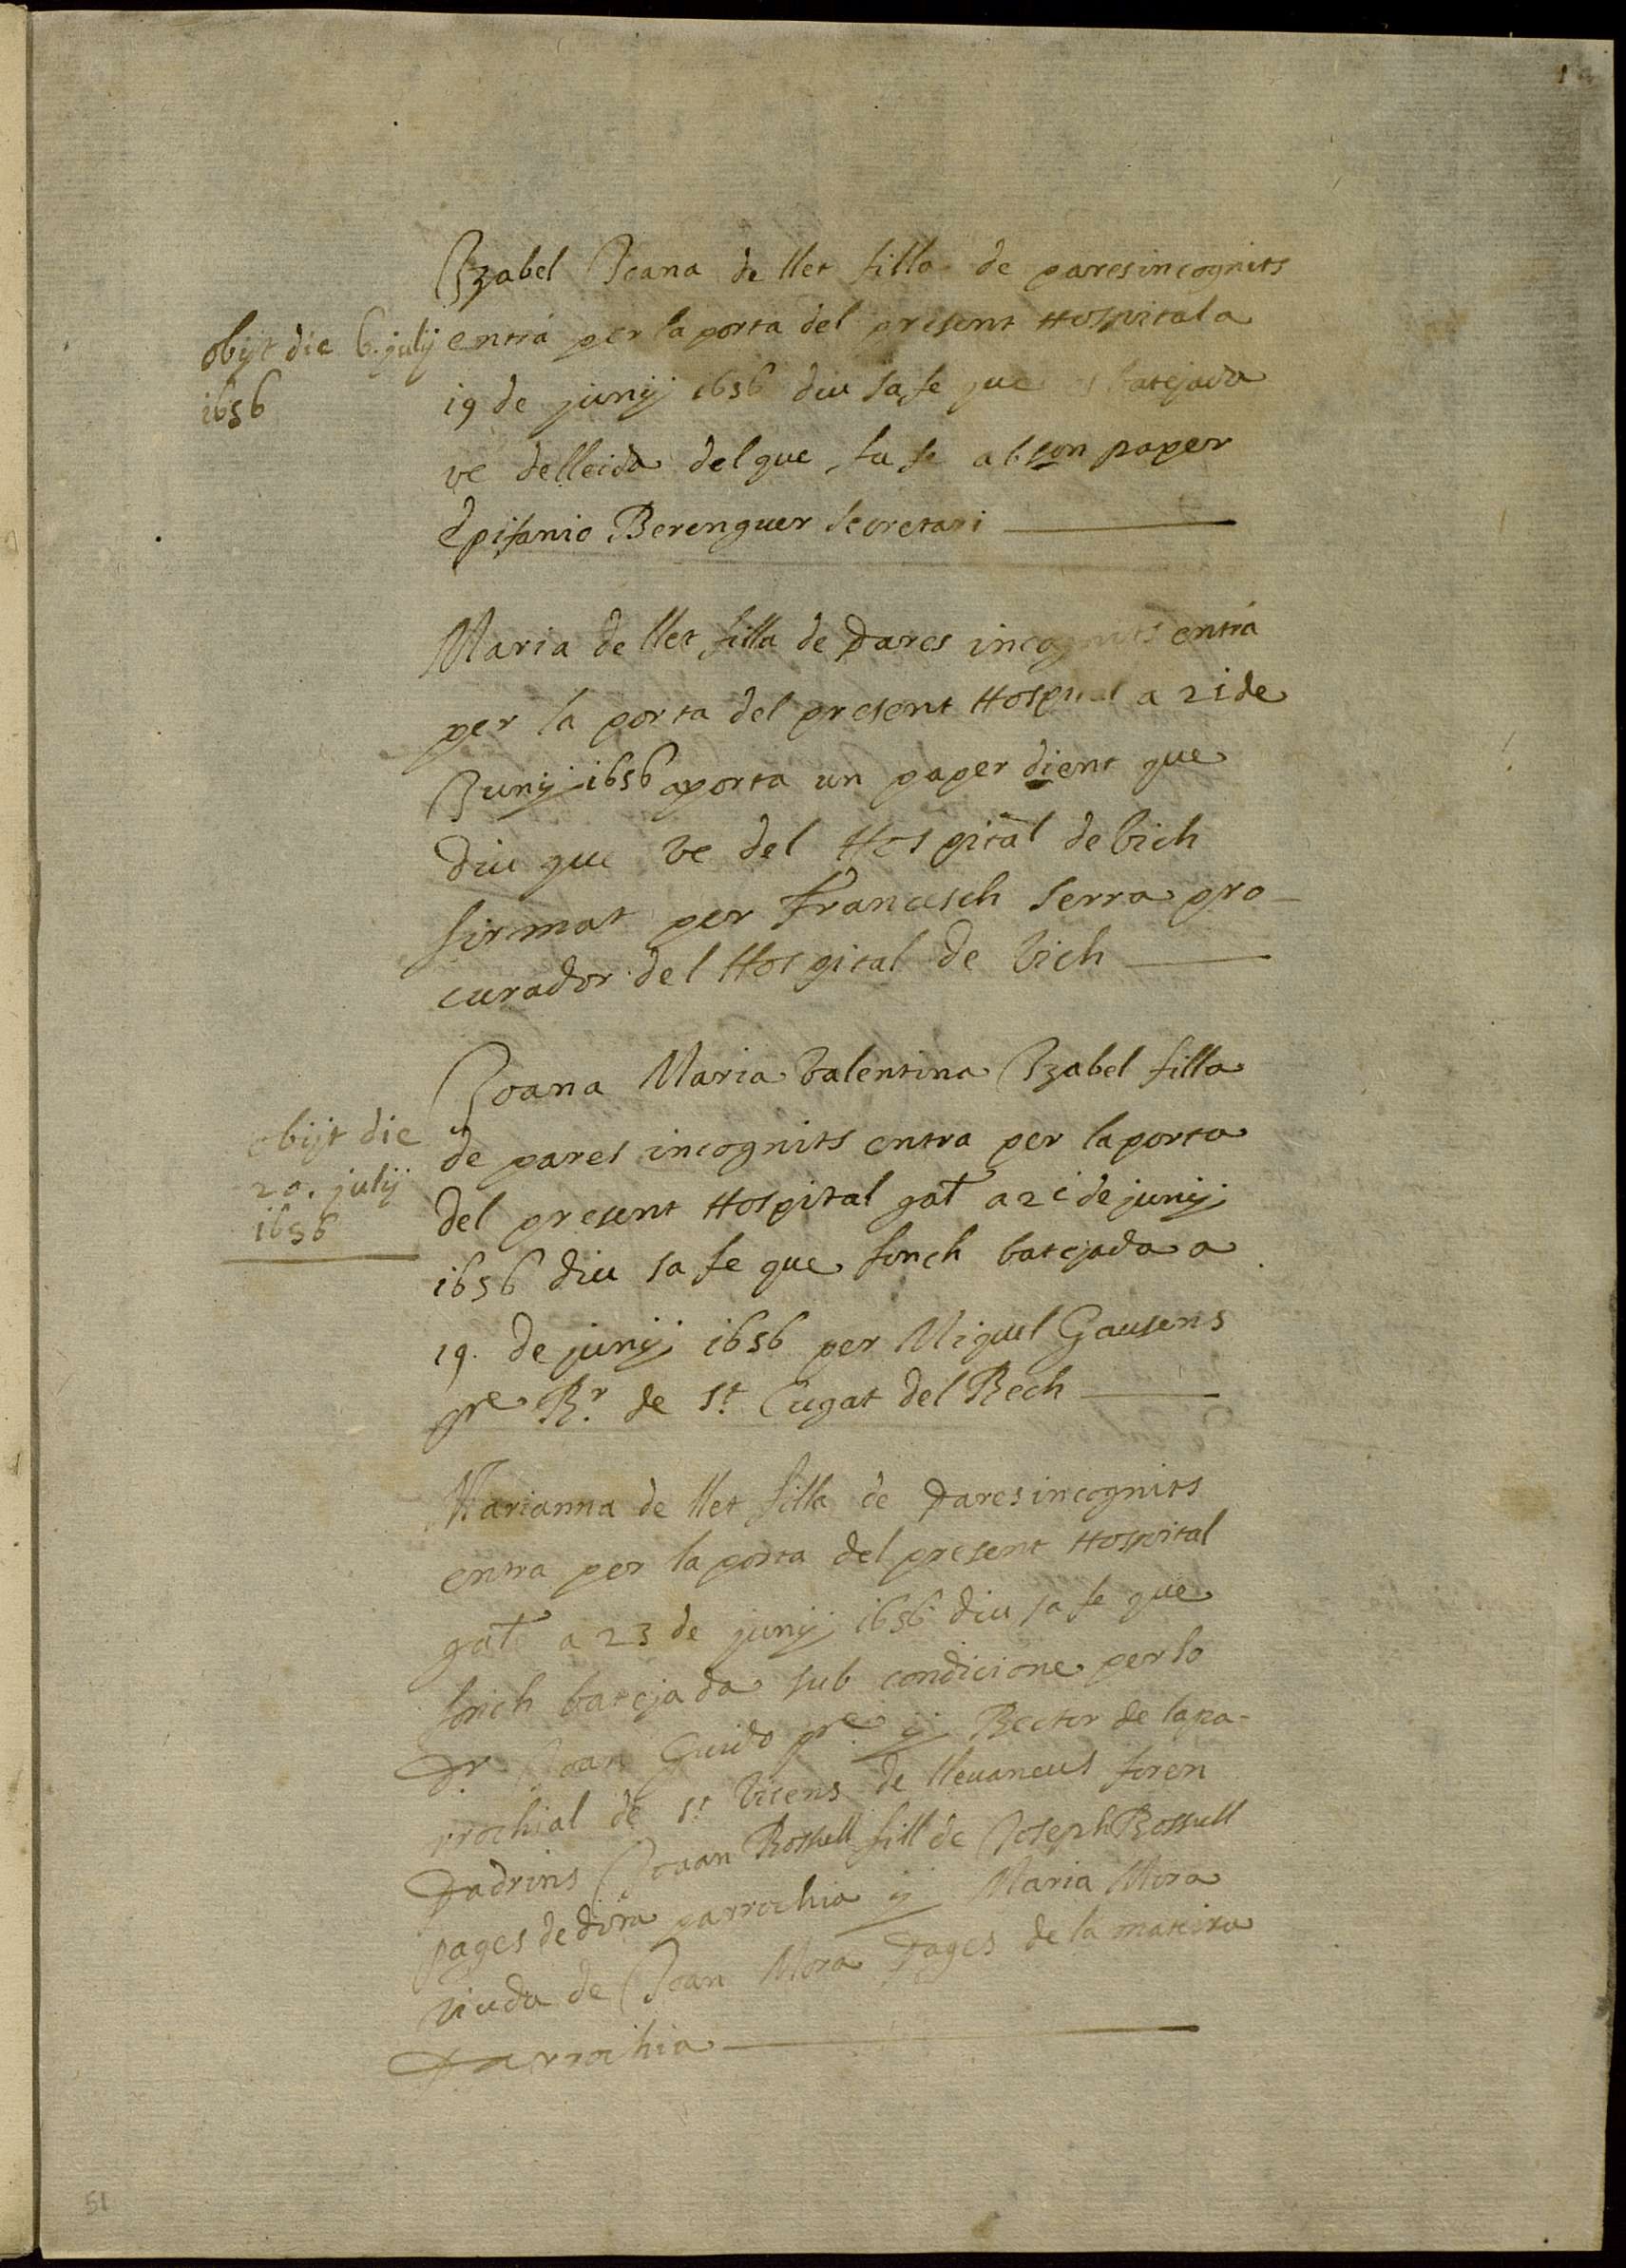 1
Izabel Joana de llet filla de pares incognits
entrá per la porta del present Hospital a
19 de junÿ 1656 diu sa fe que es batejada
ve de lleida del que fa fe ab son paper
Epifanio Berenguer Secretari
obijt die 6. julij
1656
Maria de llet filla de Pares incognits entrá
per la porta del present Hospital a 21 de
Junÿ 1656 aporta un paper dient que
diu que ve del Hospital de Vich
firmat per Francesch Serra pro-
curador del Hospital de Vich
Joana Maria Valentina Izabel filla
de pares incognits entra per la porta
del present Hospital gat a 21 de junÿ
1656 diu sa fe que fonch batejada a
19. de junÿ 1656 per Miguel Gausens
pre Rr. de St. Cugat del Rech
obijt die
20. julij
1656
Marianna de llet filla de Pares incognits
entra per la porta del present Hospital
gat a 23 de junÿ 1656 diu sa fe que
fonch batejada sub condicione per lo
Dr. Joan Guido pre. ÿ Rector de la pa-
rrochial de St. Vicens de llevaneus foren
Padrins Jouan Rossell fill de Joseph Rossell
pages de dita parrochia ÿ Maria Mora
viuda de Joan Mora Pages de la mateixa
Parrochia
51